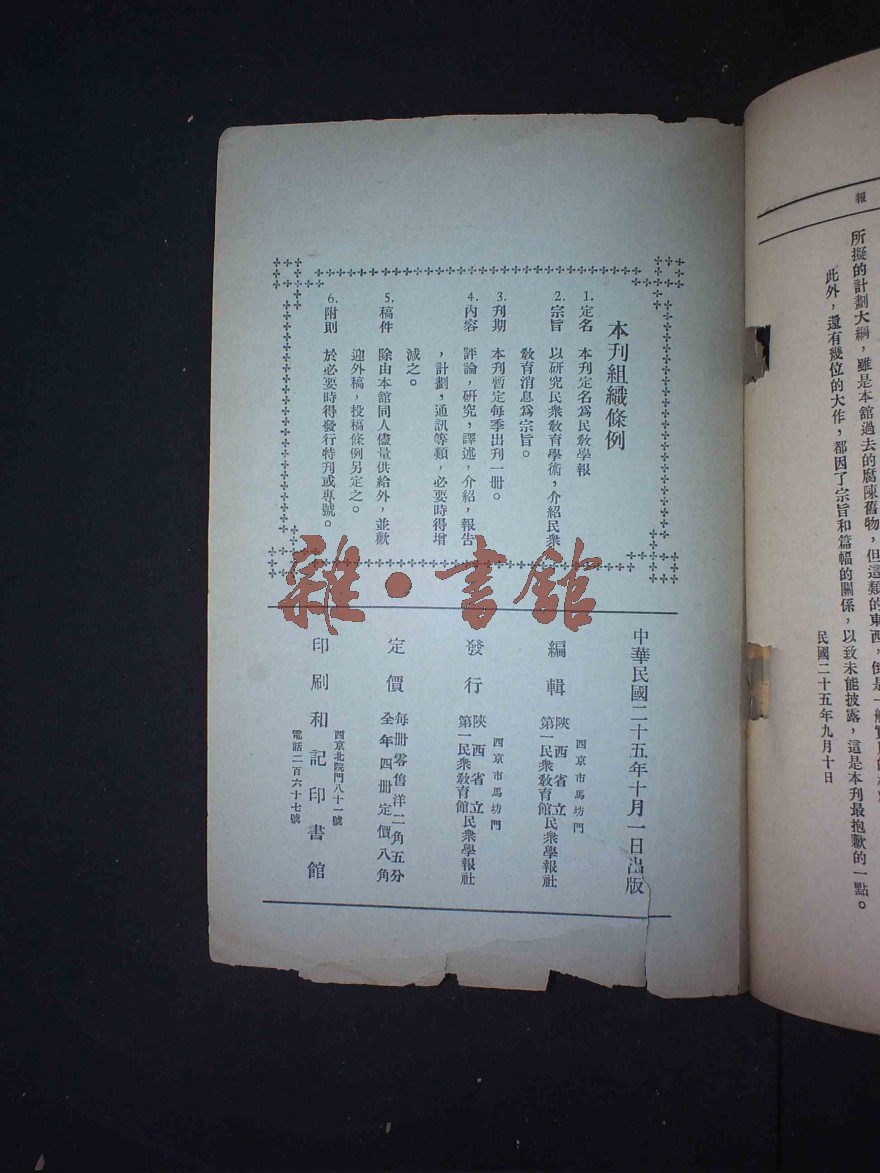 報
所擬的計劃大綱，雖是本舘過去的腐陳舊物，但這類的東西，倒是一般
此外，還有幾位的大作，都因了宗旨和篇幅的關係，以致未能披露，這是本刋最抱歉的一點。
民國二十五年九月十日
本刋組織條例
1. 定名　本刋定名爲民敎學報
2. 宗旨　以研究民衆敎育學術，介紹民衆
敎育消息爲宗旨。
3. 刋期　本刋暫定每季出刋一册。
4. 內容　評論，研究，譯述，介紹，報告
，計劃，通訊等類，必要時得增
減之。
5. 稿件　除由本舘同人儘量供給外，並歡
迎外稿，投稿條例另定之。
6. 附則　於必要時得發行特刋或專號。
雜·書館
中華民國二十五年十月一日出版
西京市馬坊門
編輯　陝西省立第一民衆敎育館民衆學報社
西京市馬坊門
發行　陝西省立第一民衆敎育館民衆學報社
定價　每册零售洋二角五分
全年四册定價八角
西京北院門八十一號
印刷　和記印書館
電話二百六十七號